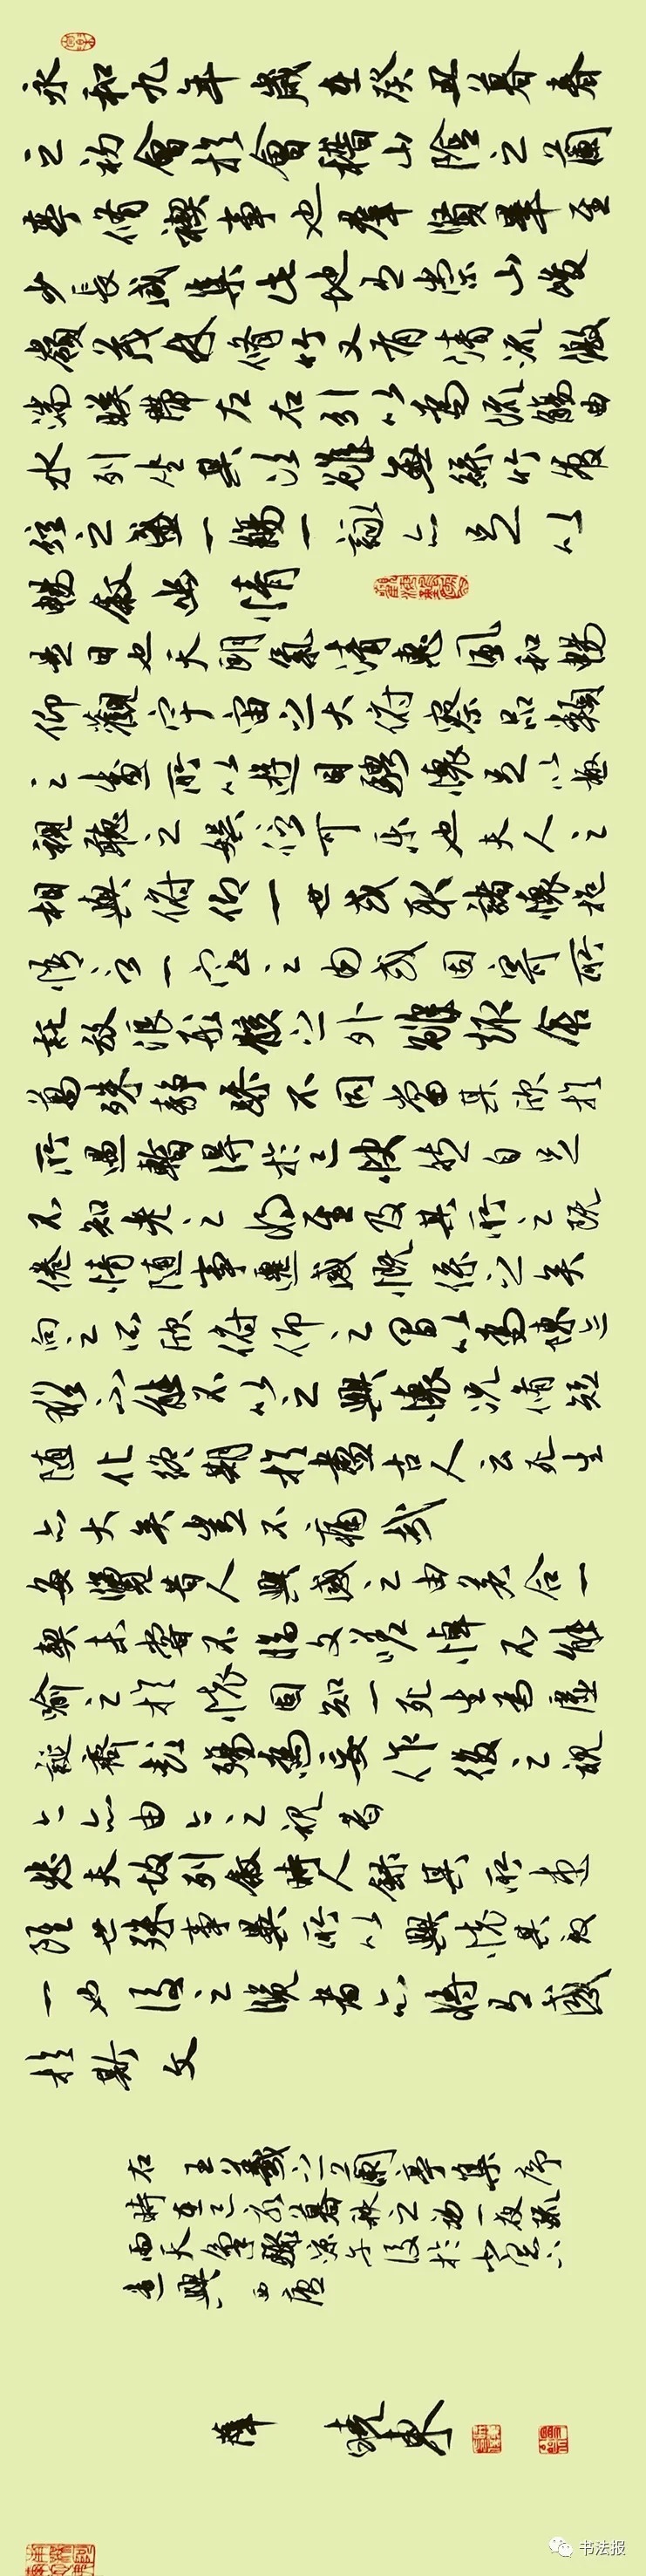 永和九年歲在癸丑暮春
之初會於會稽山陰之蘭
亭脩禊事也羣賢畢至
少長咸集此地有崇山峻
嶺茂林脩竹又有清流激
湍暎帶左右引以為流觴曲
水列坐其次雖無絲竹管
絃之盛一觴一詠亦足以
暢敘幽情
是日也天朗氣清惠風和暢
仰觀宇宙之大俯察品類
之盛所以遊目騁懷足以極
視聽之娛信可樂也夫人之
相與俯仰一世或取諸懷抱
悟言一室之內或因寄所
託放浪形骸之外雖趣舍
萬殊靜躁不同當其欣於
所遇暫得於己快然自足
不知老之將至及其所之既
倦情随事遷感慨係之矣
向之所欣俯仰之間以為陳迹
猶不能不以之興懷況脩短
随化終期於盡古人云死生
亦大矣豈不痛哉
每覽昔人興感之由若合一
契未嘗不臨文嗟悼不能
喻之於懷固知一死生為虛
誕齊彭殤為妄作後之視
今亦由今之視昔
悲夫故列敘時人錄其所述
雖世殊事異所以興懷其致
一也後之覽者亦將有感
於斯文
右王羲之蘭亭集序
時在己亥暮秋之初一夜疏
雨天氣驟涼午後於
遣興
薛曉東
书法报